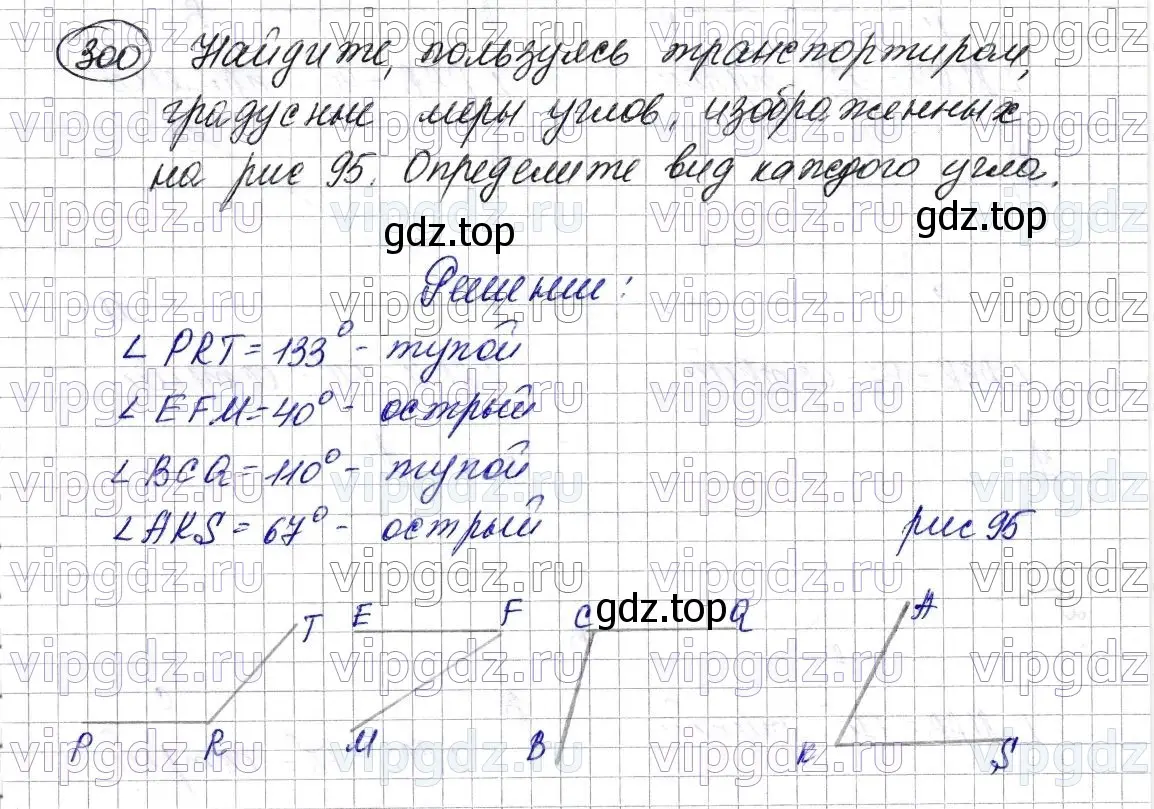 300 Найдите, пользуясь транспортиром,
градусные меры углов, изображенных
на рис 95. Определите вид каждого угла.
gdz.top gdz.top
Решение:
∠ PRT = 133° - тупой
∠ EFM = 40° - острый
∠ BCQ = 110° - тупой
∠ AKS = 67° - острый
рис 95
T E F C gdz.top Q A
P R M B K S
vipgdz.ru